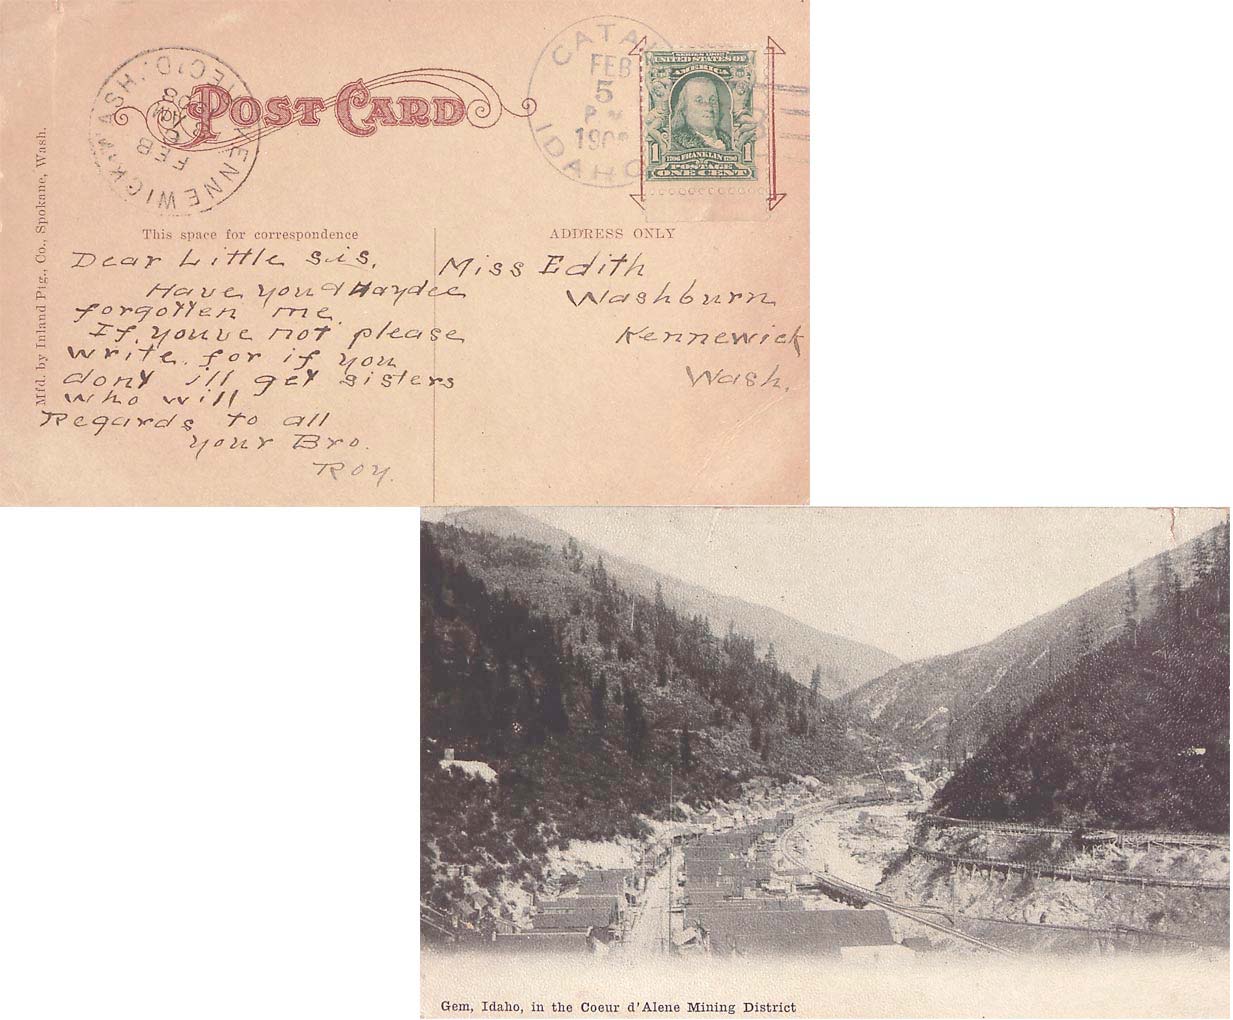 POST CARD
KENNEWICK WASH.
REC'D.
FEB
8
IDAHO
FEB
5
SERIES 1902
UNITED STATES OF
AMERICA
1 1706 FRANKLIN 1790 1
POSTAGE
ONE CENT
Mfd. by Inland Ptg., Co., Spokane, Wash.
This space for correspondence
Dear Little Sis.
Have you & Haydee
forgotten me.
If youve not please
write. for if you
dont ill get sisters
who will
Regards to all
your Bro.
Roy.
ADDRESS ONLY
Miss Edith
Washburn
Kennewick
Wash.
Gem, Idaho, in the Coeur d'Alene Mining District